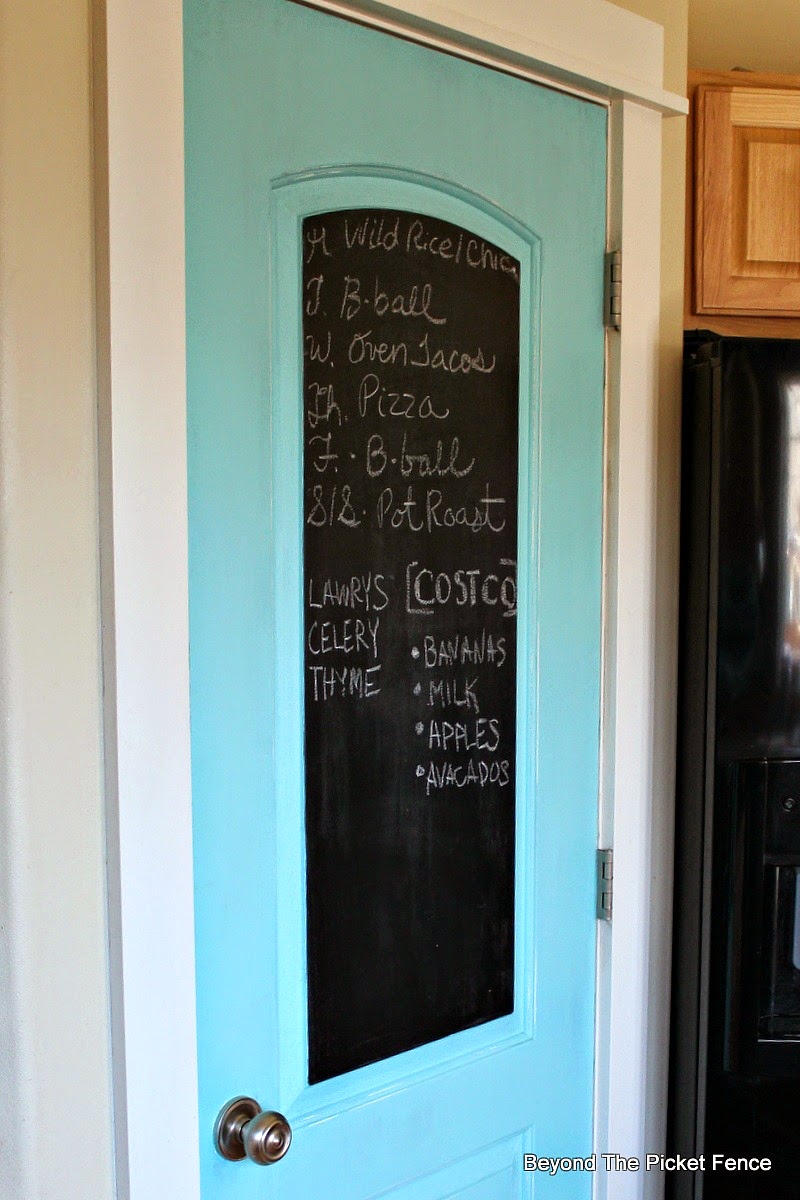 M Wild Rice/Chic
T. B-ball
W. Oven Tacos
Th. Pizza
F. B-ball
S/S. Pot Roast
LAWRYS
CELERY
THYME
[COSTCO]
• BANANAS
• MILK
• APPLES
• AVACADOS
Beyond The Picket Fence